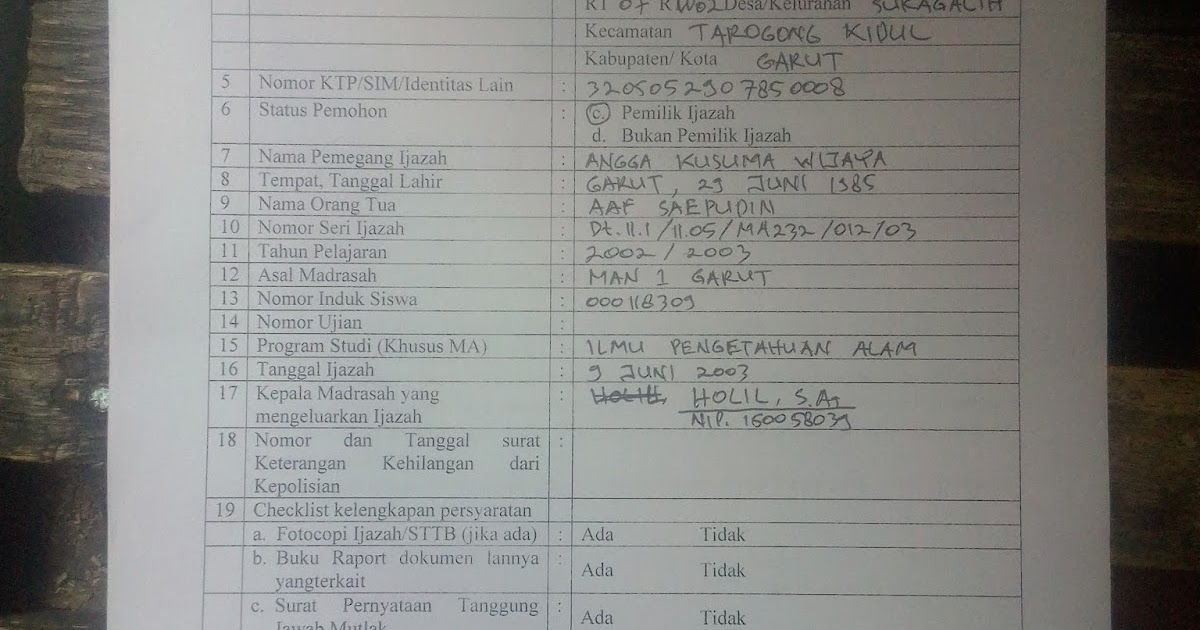 RT 07 RW02 Desa/Kelurahan SUKAGALIH
Kecamatan TAROGONG KIDUL
Kabupaten/ Kota GARUT
5 Nomor KTP/SIM/Identitas Lain : 3205052907850008
6 Status Pemohon : c. Pemilik Ijazah
d. Bukan Pemilik Ijazah
7 Nama Pemegang Ijazah : ANGGA KUSUMA WIJAYA
8 Tempat, Tanggal Lahir : GARUT, 29 JUNI 1985
9 Nama Orang Tua : AAF SAEPUDIN
10 Nomor Seri Ijazah : Dt.II.1/11.05/MA232/012/03
11 Tahun Pelajaran : 2002 / 2003
12 Asal Madrasah : MAN 1 GARUT
13 Nomor Induk Siswa : 000118309
14 Nomor Ujian :
15 Program Studi (Khusus MA) : ILMU PENGETAHUAN ALAM
16 Tanggal Ijazah : 9 JUNI 2003
17 Kepala Madrasah yang : HOLIL, S.Ag
mengeluarkan Ijazah NIP. 150058039
18 Nomor dan Tanggal surat :
Keterangan Kehilangan dari
Kepolisian
19 Checklist kelengkapan persyaratan
a. Fotocopi Ijazah/STTB (jika ada) : Ada Tidak
b. Buku Raport dokumen lannya :
yangterkait Ada Tidak
c. Surat Pernyataan Tanggung :
Jawab Mutlak Ada Tidak